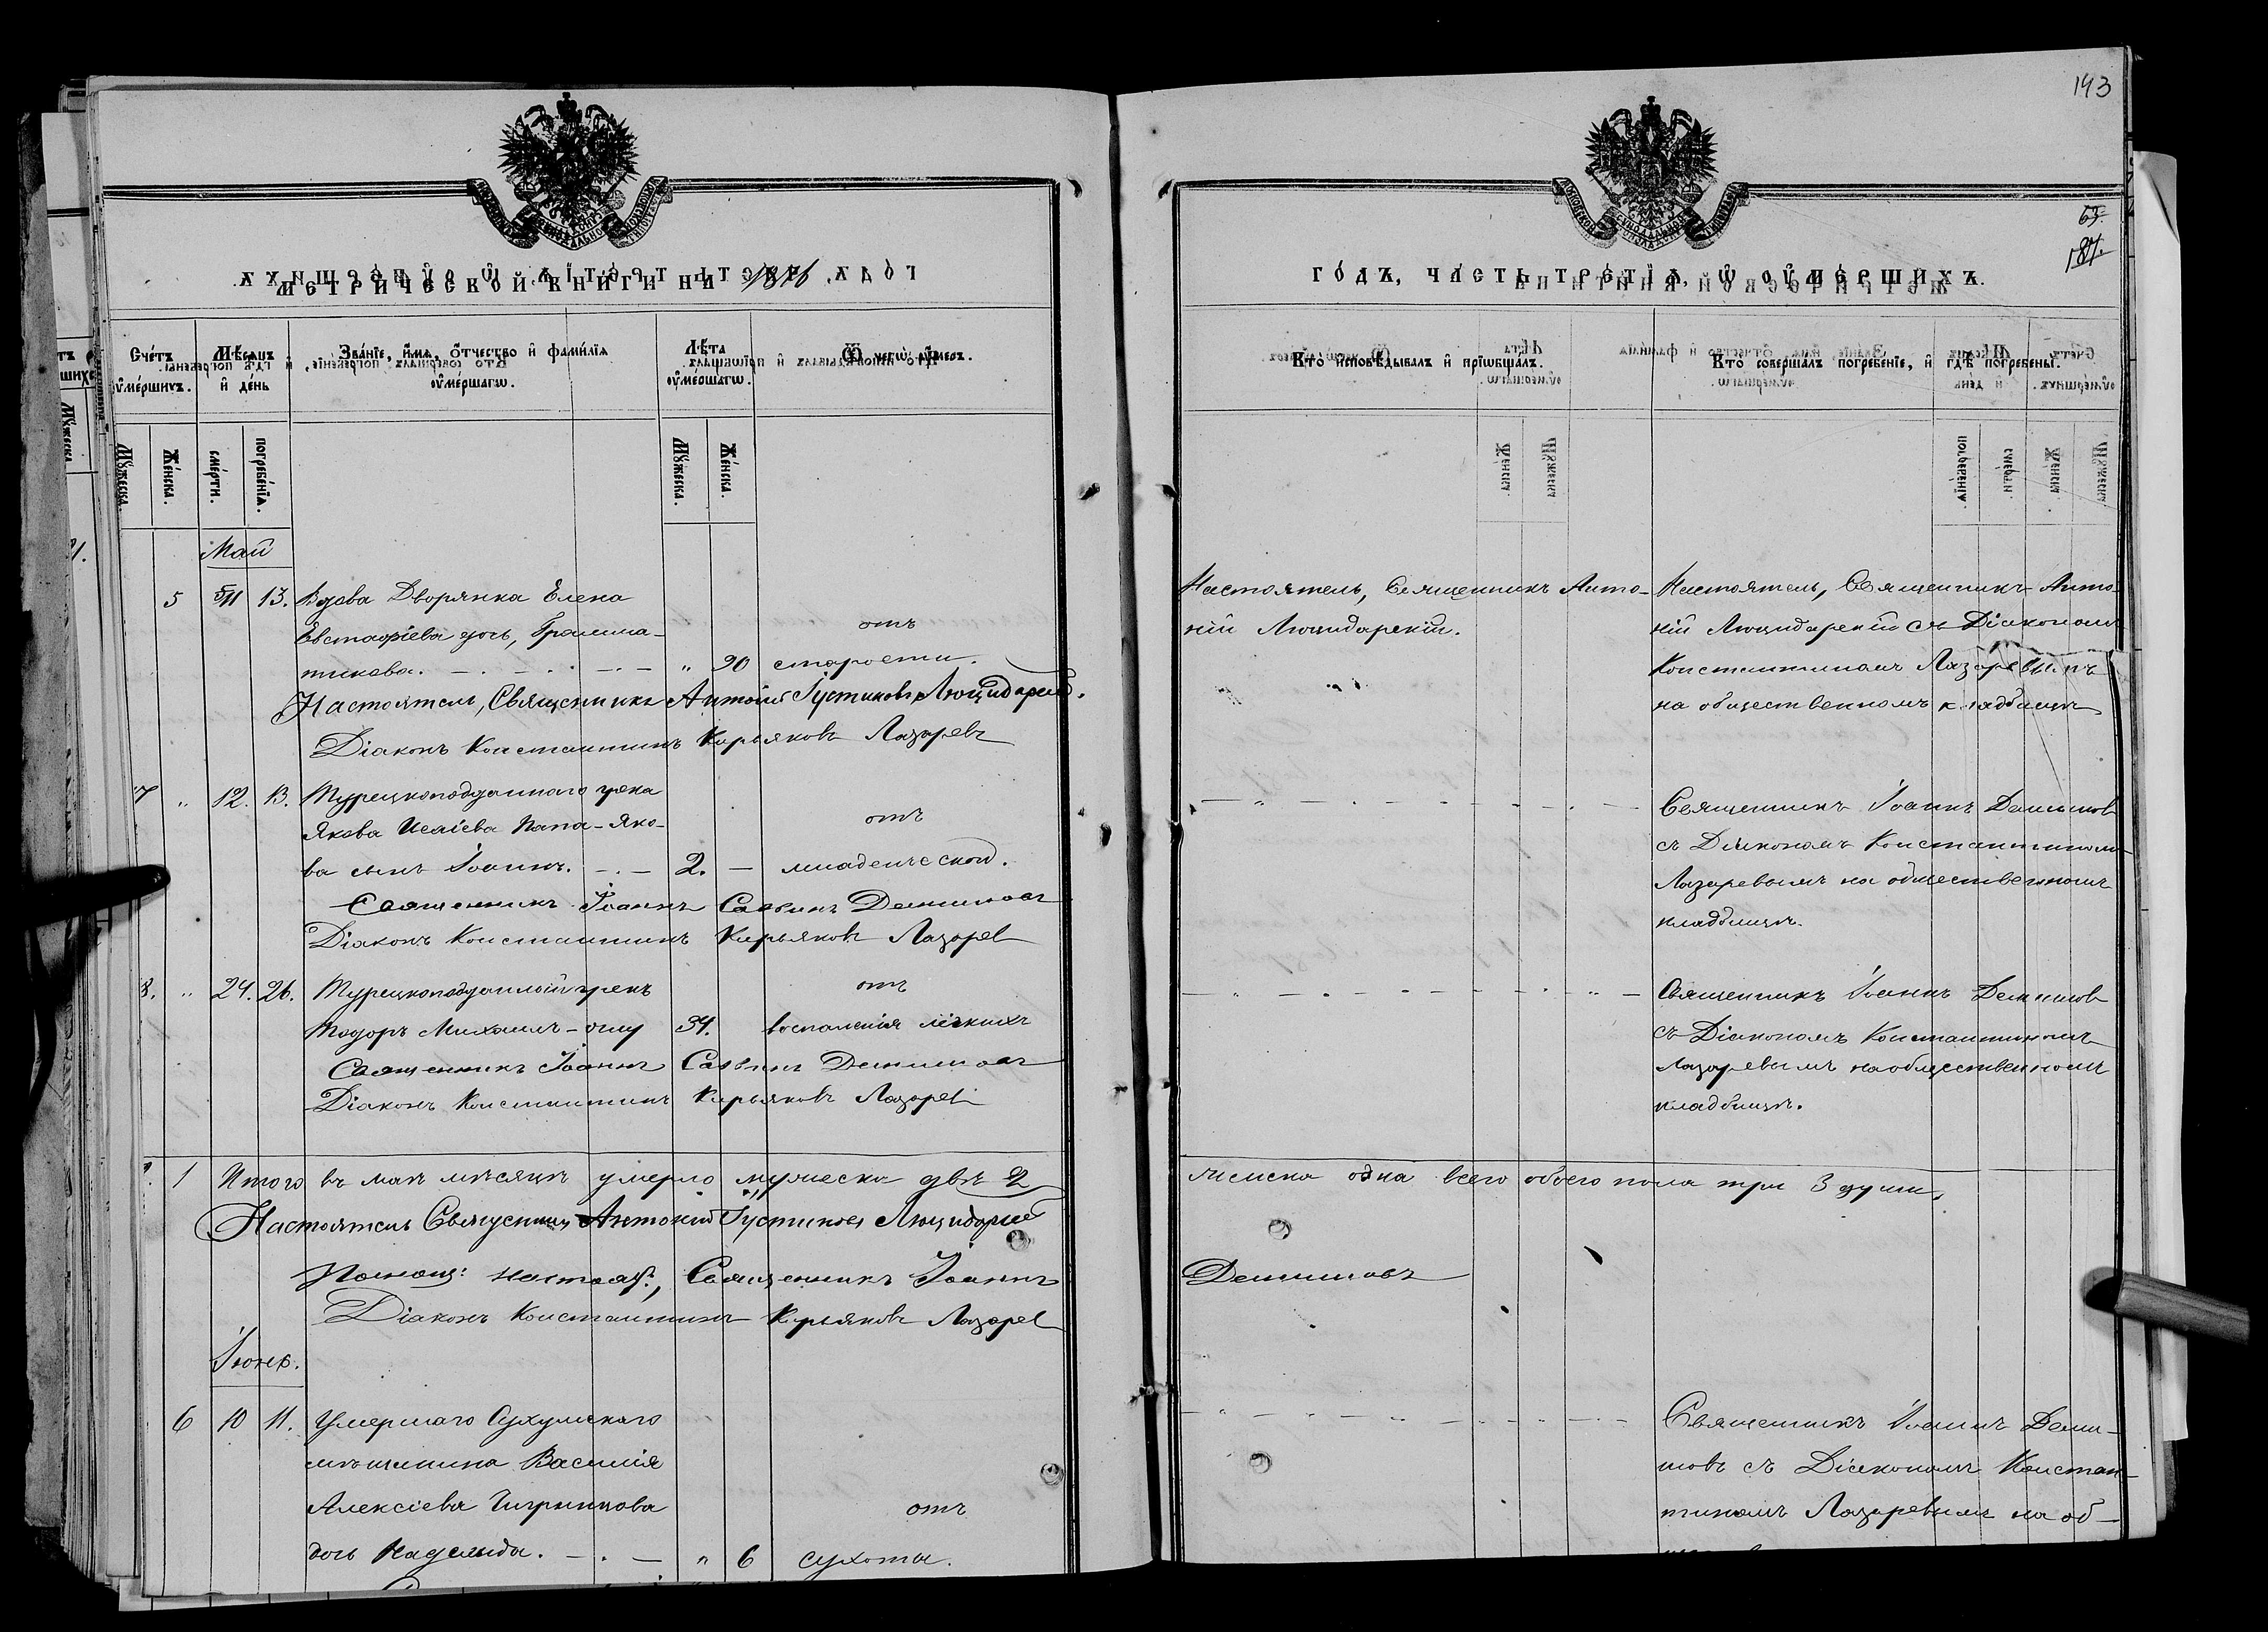 193
63.
187.
МЕТРИЧЕСКОЙ КНИГИ НА 1876
ГОДЪ, ЧАСТЬ ТРЕТІѦ, Ѡ ОУМЕРШИХЪ.
Счетъ оумершихъ.
Мѣсяцъ и день
Званіе, имя, отчество и фамилія оумершагѡ.
Лѣта оумершагѡ.
Ѿ чегѡ оумеръ.
Кто исповѣдывалъ и пріѡбщалъ.
Кто совершалъ погребеніе, и гдѣ погребены.
Мужеска.
Женска.
смерти.
погребенія.
Мужеска.
Женска.
Май
5 11 13. Вдова Дворянка Елена
Евстафіева дочь, Грамма-
тикова. " 90 отъ старости.
Настоятель, Священникъ Анто-
ній Люцидарскій.
Настоятель, Священникъ Анто-
ній Люцидарскій съ Діакономъ
Константиномъ Лазаревымъ
на общественномъ кладбищѣ
Настоятель, Священникъ Антоній Іустиновъ Люцидарскій.
Діаконъ Константинъ Кирьяковъ Лазаревъ
7 " 12. 13. Турецкоподданнаго грека
Якова Исаіева Папа-Яко-
ва сынъ Іоаннъ. 2. — отъ младенческой.
Священникъ Іоаннъ Демяновъ
съ Діакономъ Константиномъ
Лазаревымъ на общественномъ
кладбищѣ.
Священникъ Іоаннъ Саввинъ Демяновъ
Діаконъ Константинъ Кирьяковъ Лазаревъ
8. " 24. 26. Турецкоподданный грекъ
Тодоръ Михаилъ-оглу 34. отъ воспаленія лёгкихъ
Священникъ Іоаннъ Демяновъ
съ Діакономъ Константиномъ
Лазаревымъ на общественномъ
кладбищѣ.
Священникъ Іоаннъ Саввинъ Демяновъ
Діаконъ Константинъ Кирьяковъ Лазаревъ
1 Итого въ маѣ мѣсяцѣ умерло мужеска двѣ 2 женска одна всего обоего пола три 3 души.
Настоятель Священникъ Антоній Іустиновъ Люцидарскій
Помощ: настоят., Священникъ Іоаннъ Демяновъ
Діаконъ Константинъ Кирьяковъ Лазаревъ
Іюнь.
6 10 11. Умершаго Сухумскаго
мѣщанина Василія
Алексіева
дочь Надежда. " 6 отъ сухоты.
Священникъ Іоаннъ Демя-
новъ съ Діакономъ Констан-
тиномъ Лазаревымъ на об-